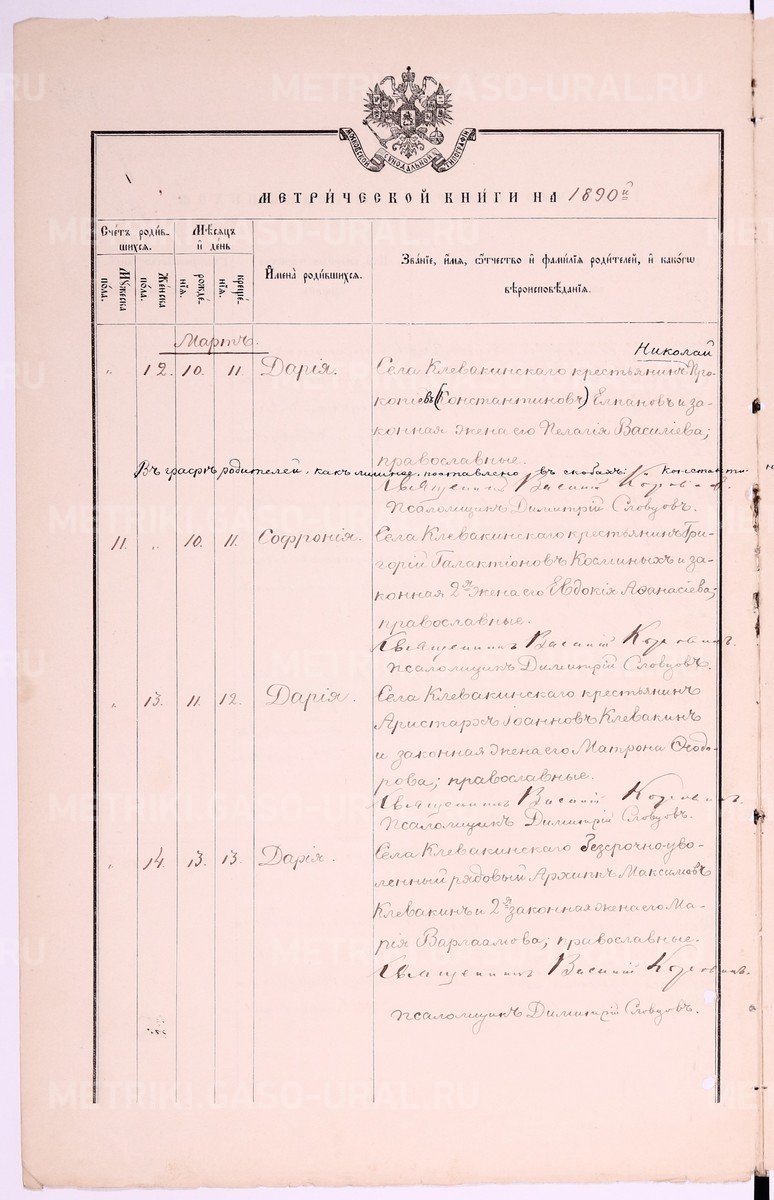 METRIKI.GASO-URAL.RU
МОСКОВСКОЙ СѴНОДАЛЬНОЙ ТИПОГРАФІИ
МЕТРИ́ЧЕСКОЙ КНИ́ГИ НА 1890 й
Сче́тъ роди́вшихся.
Мѣ́сяцъ и҆ де́нь
И҆мена̀ роди́вшихся.
Зва́нїе, и҆́мя, ѻ҆́тчество и҆ фами́лїя роди́телей, и҆ како́гѡ вѣроисповѣ́данїя.
Мꙋ́жеска по́ла.
Же́нска по́ла.
рожде́нїя.
креще́нїя.
Мартъ.
Николай
„ 12. 10. 11. Дарія. Села Клевакинскаго крестьянинъ Про-
копіевъ (Константиновъ) Елпановъ и за-
конная жена его Пелагія Василіева;
православные.
Въ графѣ родителей, какъ лишнее, поставлено въ скобахъ: „Константи-
Священникъ Василій Коровинъ.
Псаломщикъ Димитрій Словцовъ.
11. „ 10. 11. Софронія. Села Клевакинскаго крестьянинъ Гри-
горій Галактіоновъ Косминыхъ и за-
конная 2я жена его Евдокія Аѳанасіева;
православные.
Священникъ Василій Коровинъ.
Псаломщикъ Димитрій Словцовъ.
„ 13. 11. 12. Дарія. Села Клевакинскаго крестьянинъ
Аристархъ Іоанновъ Клевакинъ
и законная жена его Матрона Ѳеодо-
рова; православные.
Священникъ Василій Коровинъ.
Псаломщикъ Димитрій Словцовъ.
„ 14. 13. 13. Дарія. Села Клевакинскаго безсрочно-уво-
ленный рядовый Архипъ Максимовъ
Клевакинъ и 2я законная жена его Ма-
рія Варлаамова; православные.
Священникъ Василій Коровинъ.
Псаломщикъ Димитрій Словцовъ.
METRIKI.GASO-URAL.RU